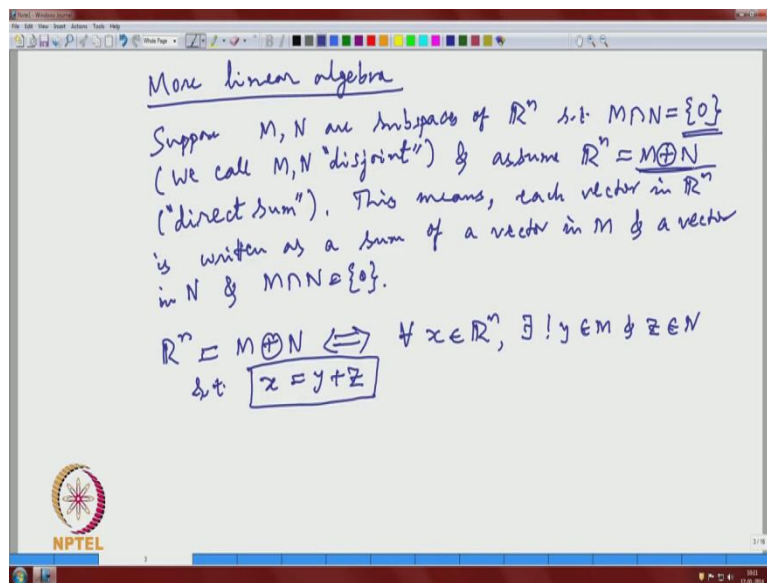 Note1 - Windows Journal
File Edit View Insert Actions Tools Help
Whole Page
More linear algebra
Suppose M, N are subspaces of ℝⁿ s.t. M∩N={0}
(we call M, N "disjoint") & assume ℝⁿ = M⊕N
("direct sum"). This means, each vector in ℝⁿ
is written as a sum of a vector in M & a vector
in N & M∩N={0}.
ℝⁿ = M⊕N ⇔ ∀ x∈ℝⁿ, ∃! y∈M & z∈N
s.t. x = y+z
NPTEL
3
3/18